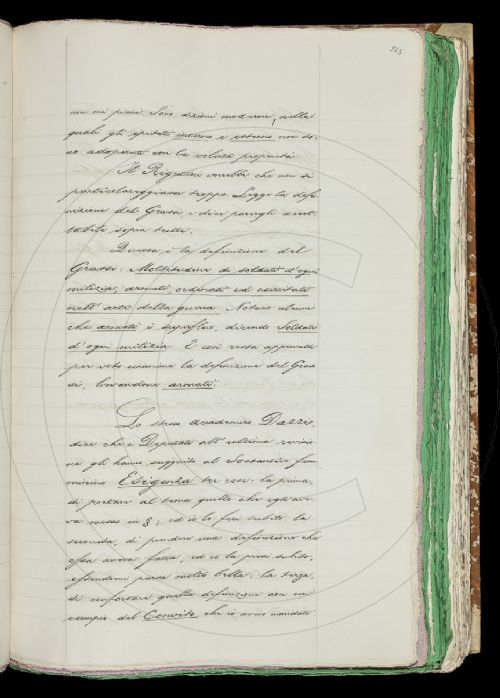 525
non mi piace. Sono dizioni moderne, nelle
quali gli epiteti interno e esterno non so-
no adoperati con la voluta proprietà.
Il Rigutini vorrebbe che non si
particolareggiasse troppo. Legge la defi-
nizione del Grassi e dice parergli accet-
tabile sopra tutte.
Questa è la definizione del
Grassi: Moltitudine di soldati d'ogni
milizia, armati, ordinati ed esercitati
nell'arte della guerra. Notano alcuni
che armati è superfluo, dicendo Soldati
d'ogni milizia. E così resta approvata
per voto unanime la definizione del Gras-
si, levandone armati.
Lo stesso accademico Dazzi,
dice che i Deputati all'ultima revisio-
ne gli hanno suggerito al
Esigenza tre cose: la prima,
di portare al tema quello che egli ave-
va messo in §; ed io lo feci subito; la
seconda, di prendere una definizione che
essa aveva fatta, ed io la presi subito,
essendomi parsa molto bella; la terza,
di confortare quella definizione con un
esempio del Convito, che io avevo mandato